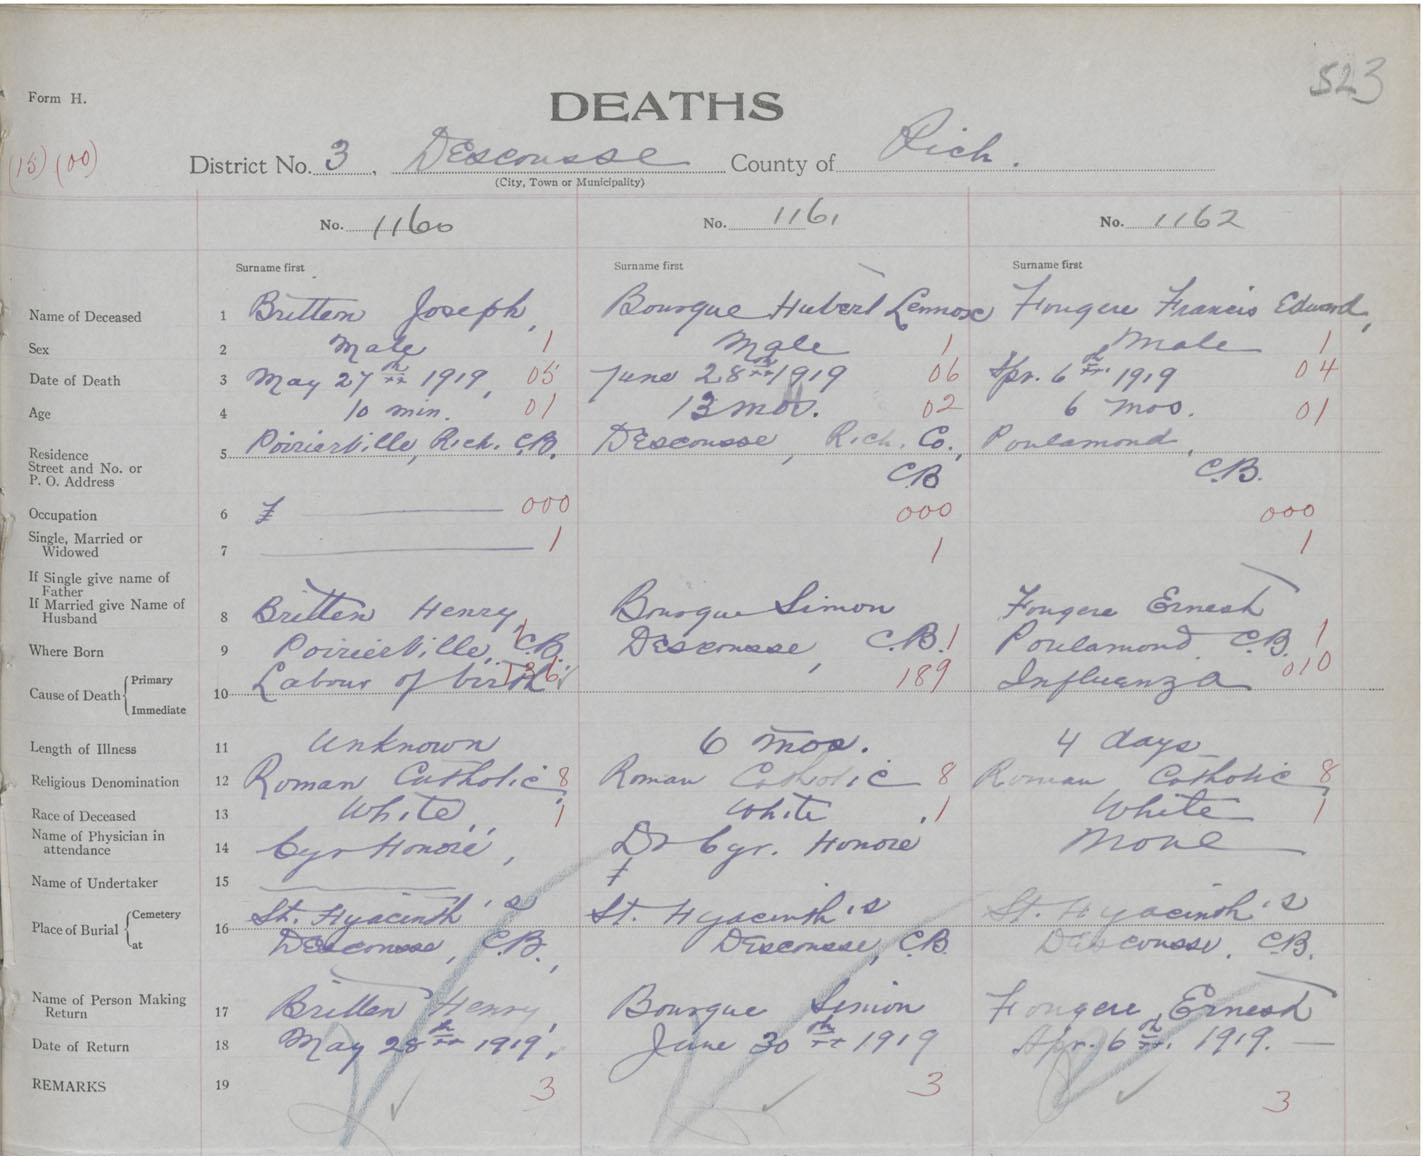 523
Form H.
DEATHS
(15) (00)
District No. 3, DEscousse County of Rich.
(City, Town or Municipality)
No. 1160 No. 1161 No. 1162
Surname first Surname first Surname first
Name of Deceased 1 Britten Joseph, Bourque Hubert Lennox Fougere Francis Edward,
Sex 2 Male 1 Male 1 Male 1
Date of Death 3 May 27th 1919, 05 June 28th 1919 06 Apr. 6th 1919 04
Age 4 10 min. 01 13 mos. 02 6 mos. 01
Residence 5 Poirierville, Rich. C.B. DEscousse, Rich. Co., Poulamond,
Street and No. or
P. O. Address C.B C.B.
Occupation 6 000 000 000
Single, Married or
Widowed 7 1 1 1
If Single give name of
Father
If Married give Name of
Husband 8 Britten Henry, Bourque Simon Fougere Ernest
Where Born 9 Poirierville, C.B. 1 DEscousse, C.B. 1 Poulamond C.B. 1
Cause of Death { Primary
Immediate 10 Labour of birth 136 189 Influenza 010
Length of Illness 11 Unknown 6 mos. 4 days
Religious Denomination 12 Roman Catholic 8 Roman Catholic 8 Roman Catholic, 8
Race of Deceased 13 White, 1 White 1 White 1
Name of Physician in
attendance 14 Cyr Honoré, Dr Cyr. Honoré None
Name of Undertaker 15
Place of Burial { Cemetery
at 16 St. Hyacinth's St. Hyacinth's St. Hyacinth's
DEscousse, C.B., DEscousse, C.B. DEscousse, C.B.
Name of Person Making
Return 17 Britten Henry, Bourque Simon Fougere, Ernest
Date of Return 18 May 28th 1919, June 30th 1919 Apr. 6th. 1919. —
REMARKS 19 3 3 3